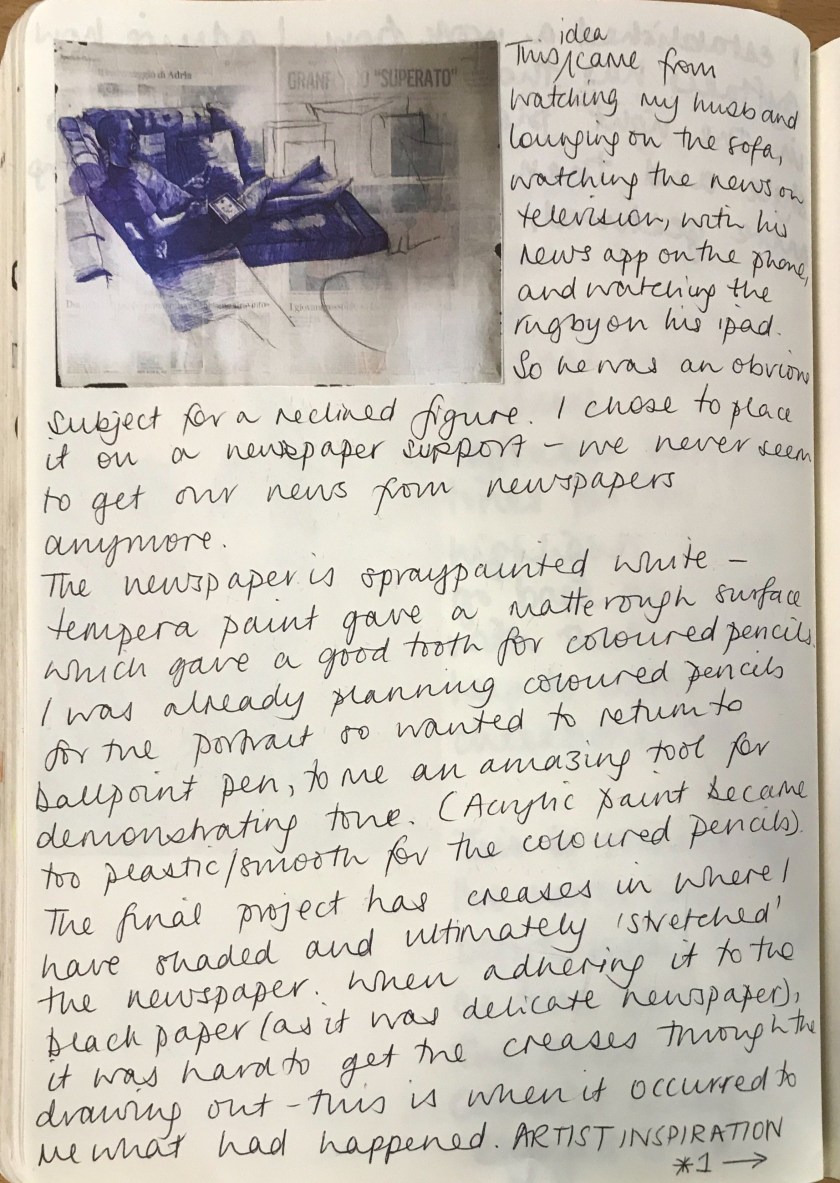 ggio di Adria
GRANF    O "SUPERATO"
idea
This / came from
watching my husband
lounging on the sofa,
watching the news on
television, with his
news app on the phone,
and watching the
rugby on his ipad.
So he was an obvious
subject for a reclined figure. I chose to place
it on a newspaper support - we never seem
to get our news from newspapers
anymore.
The newspaper is spraypainted white -
tempera paint gave a matte rough surface
which gave a good tooth for coloured pencils.
I was already planning coloured pencils
for the portrait so wanted to return to
ballpoint pen, to me an amazing tool for
demonstrating tone. (Acrylic paint became
too plastic/smooth for the coloured pencils).
The final project has creases in where I
have shaded and ultimately 'stretched'
the newspaper. When adhering it to the
black paper (as it was delicate newspaper),
it was hard to get the creases through the
drawing out - this is when it occurred to
me what had happened. ARTIST INSPIRATION
*1 →